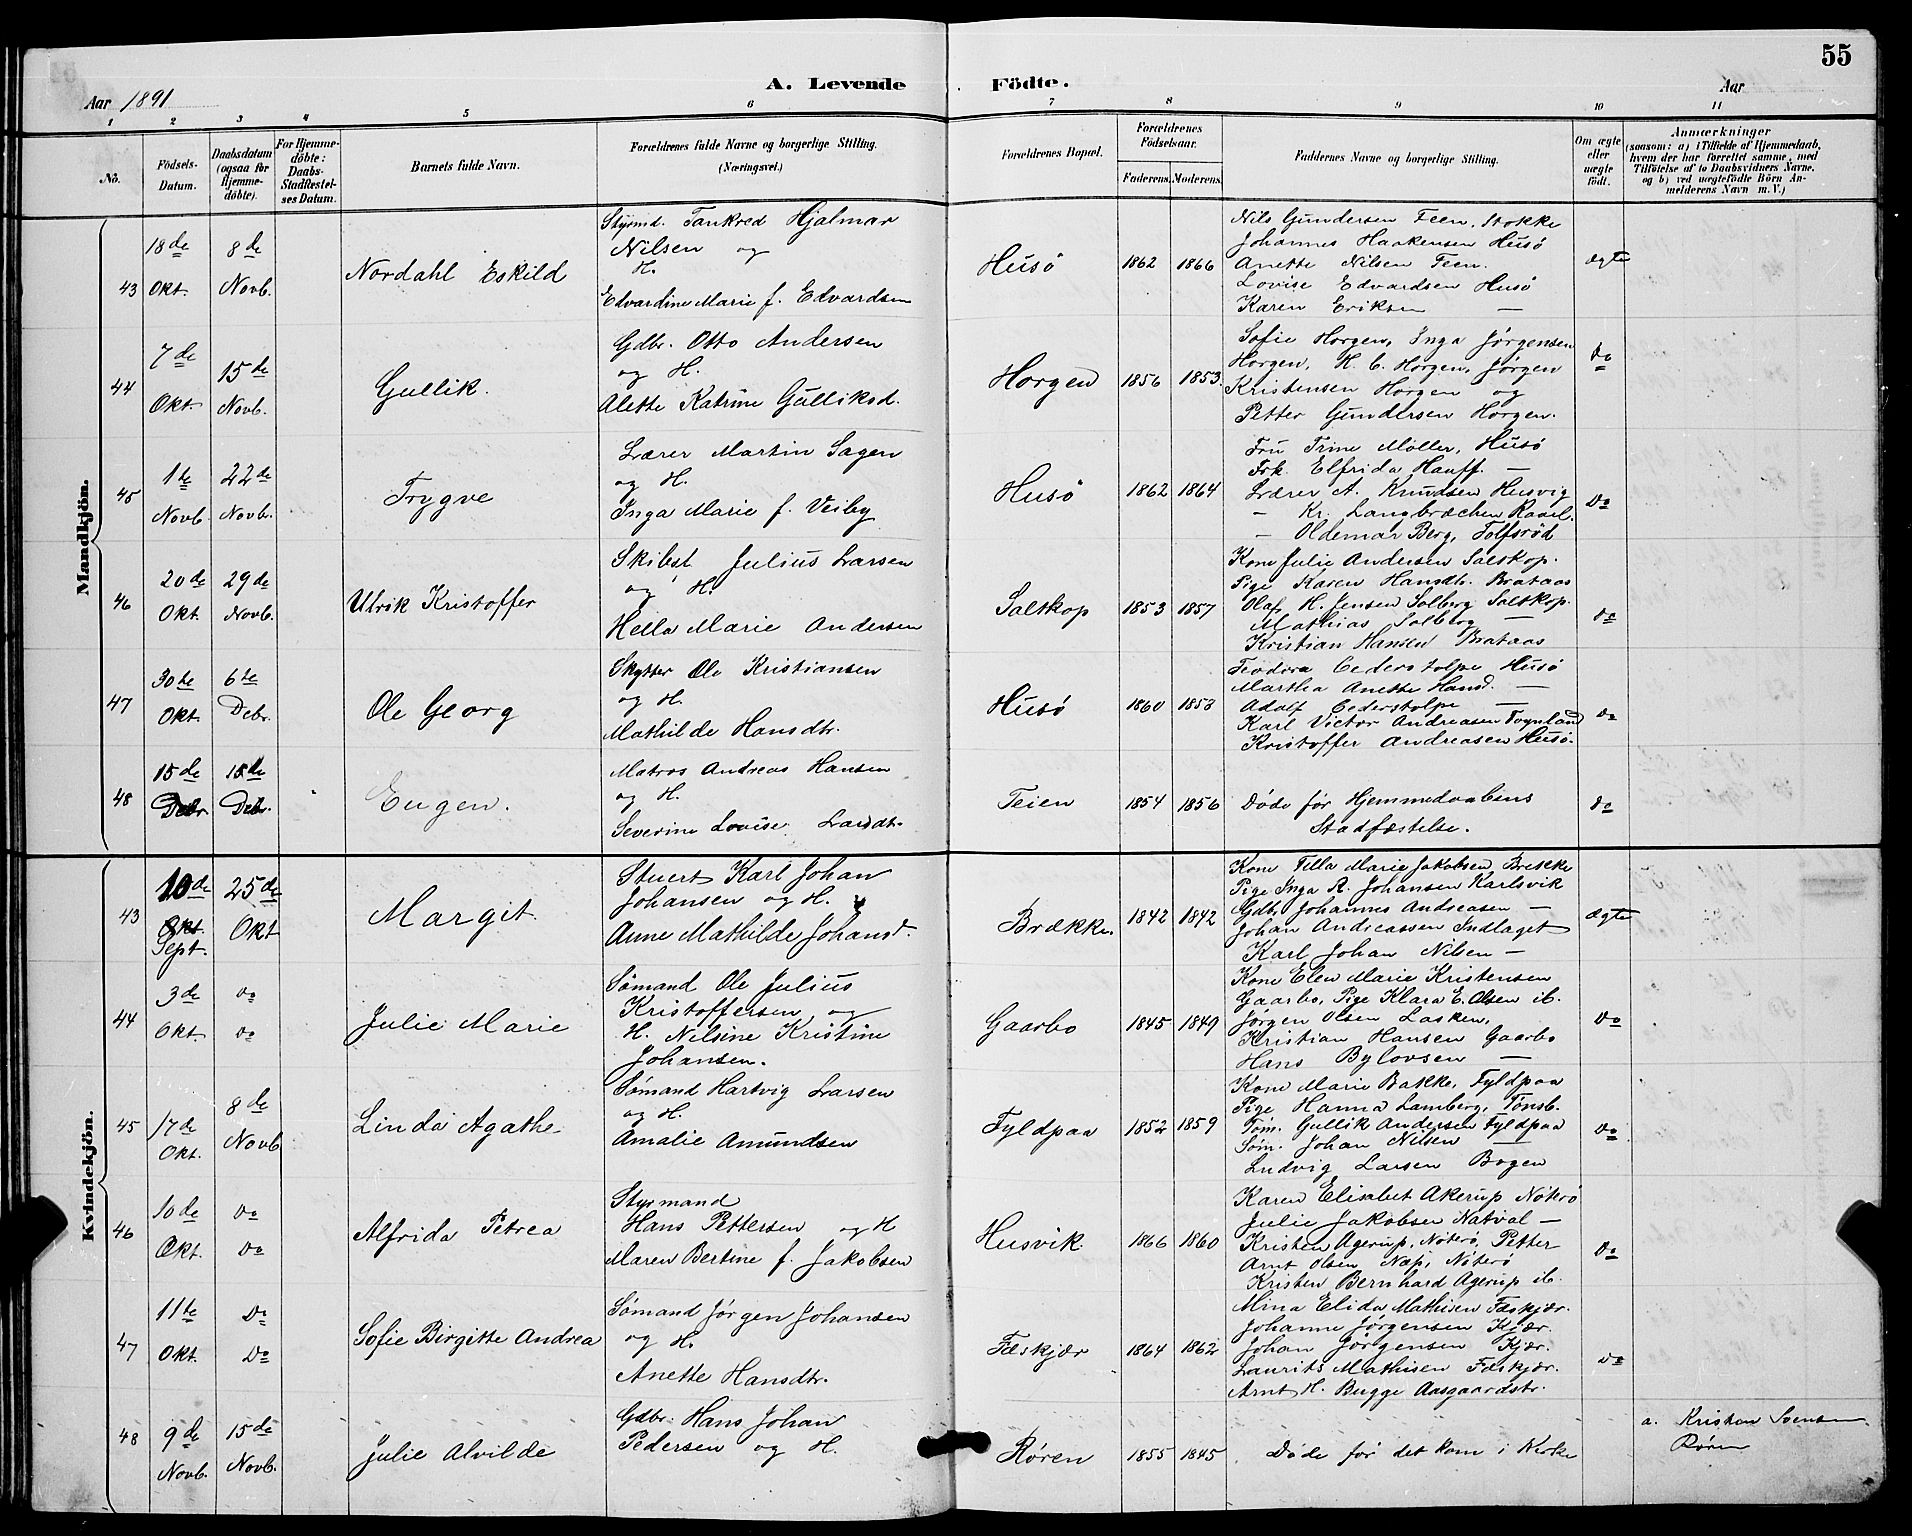 55
A. Levende Födte.
Aar 1891
Aar
1 2 3 4 5 6 7 8 9 10 11
No.
Födsels-Datum.
Daabsdatum (ogsaa for Hjemme-döbte).
For Hjemme-döbte: Daabs-Stadfæstel-ses Datum.
Barnets fulde Navn.
Forældrenes fulde Navne og borgerlige Stilling.
(Næringsvei.)
Forældrenes Bopæl.
Forældrenes Födselsaar.
Faderens. Moderens.
Faddernes Navne og borgerlige Stilling.
Om ægte eller uægte födt.
Anmærkninger
(saasom: a) i Tilfælde af Hjemmedaab,
hvem der har forrettet samme, med
Tilföielse af to Daabsvidners Navne,
og b) ved uægtefödte Börn An-
melderens Navn m. V.)
Mandkjön.
43
18de Okt.
8de Novb.
Nordahl Eskild
Styrmd. Tankred Hjalmar
Nilsen og
H.
Edvardine Marie f. Edvardsen
Husö
1862 1866
Nils Gundersen Teen, Stokke
Johannes Haakensen Husö
Anette Nilsen Teen.
Lovise Edvardsen Husö
Karen Eriksen —
ægte
44
7de Okt.
15de Novb.
Gullik.
Gdbr. Otto Andersen
og H.
Alette Katrine Gulliksd.
Horgen
1856 1853.
Sofie Horgen, Inga Jørgensen
Horgen, H. C. Horgen, Jørgen
Kristensen Horgen og
Petter Gundersen Horgen.
Do
45
1te Novb.
22de Novb.
Trygve
Lærer Martin Sagen
og H.
Inga Marie f. Veiby
Husö
1862 1864
Fru Trine Möller, Husö
Frk. Elfrida Hauff. —
Lærer A. Knudsen Husvig
— Kr. Langbrachen Raael.
— Oldemar Berg, Tolfsröd
Do
46
20de Okt.
29de Novb.
Ulrik Kristoffer
Skibst Julius Larsen
og H.
Hella Marie Andersen
Saltkop
1853 1857
Kone Julie Andersen Saltkop.
Pige Karen Hansdtr. Brataas
Olaf H. Jensen Solberg Saltkop.
Mathias Solberg —
Kristian Hansen Brataas
do
47
30te Okt.
6te Debr.
Ole Georg
Skytter Ole Kristiansen
og H.
Mathilde Hansdtr.
Husö
1860 1858
Teodora Cederstolpe Husö
Martha Anette Hansd. —
Adolf Cederstolpe —
Karl Victor Andreasen Toynland
Kristoffer Andreasen Husö.
Do
48
15de Debr.
15de Debr.
Eugen.
Matros Andreas Hansen
og H.
Severine Lovise Larsdt.
Teien
1854 1856
Døde før Hjemmedaabens
Stadfæstelse.
do
Kvindekjön.
43
10de Okt. Sept.
25de Okt
Margit
Stuert Karl Johan
Johansen og H.
Anne Mathilde Johansd.
Brække.
1842 1842
Kone Tilla Marie Jakobsen Brekke
Pige Inga R. Johansen Karlsvik
Gdb. Johannes Andreasen —
Johan Andreassen Indlaget
Karl Johan Nilsen —
ægte
44
3de Okt.
do do
Julie Marie
Sømand Ole Julius
Kristoffersen og
H. Nilsine Kristine
Johansen.
Gaarbo
1845 1849
Kone Elen Marie Kristensen
Gaarbo, Pige Klara E. Olsen ib.
Jørgen Olsen Lasken,
Kristian Hansen Gaarbo
Hans Bylovsen —
Do
45
17de Okt.
8de Novb
Linda Agathe
Sømand Hartvig Larsen
og H.
Amalie Amundsen
Fyldpaa
1852 1859
Kone Marie Bakke, Fyldpaa
Pige Hanna Lamberg, Tönsb.
Tøm. Gullik Andersen Fyldpaa
Søm. Johan Nilsen —
Ludvig Larsen Bogen
Do
46
10de Okt.
Do Do
Alfrida Petrea
Styrmand
Hans Pettersen og H
Maren Bertine f. Jakobsen
Husvik
1866 1860
Karen Elisabet Akerup Nöterö
Julie Jakobsen Natval —
Kristen Agerup, Nöterö, Petter
Arnt Olsen Næp, Nöterö
Kristen Bernhard Agerup ib.
Do
47
11te Okt.
Do Do
Sofie Birgitte Andrea
Sømand Jørgen Johansen
og H.
Anette Hansdtr.
Fæskjær
1864 1862
Mina Elida Mathisen Fæskjær.
Johanne Jørgensen Kjær.
Johan Jørgensen Kjær.
Laurits Mathisen Fæskjær.
Arnt H. Bugge Aasgaardstr.
do
48
9de Novb.
15de Novb.
Julie Alvilde
Gdbr. Hans Johan
Pedersen og H.
Røren
1855 1845
Døde før det kom i Kirke
a. Kristen Svensen
Røren